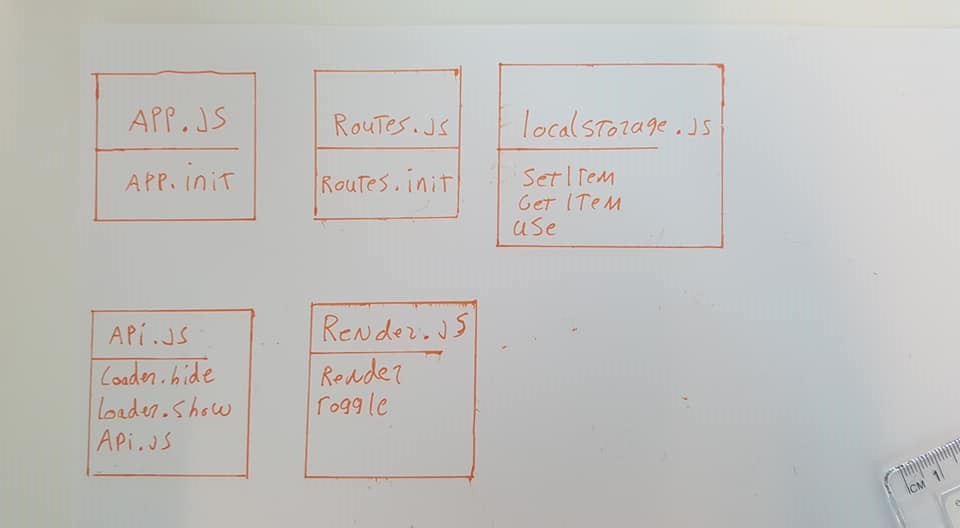 APP.JS
APP.init
Routes.js
Routes.init
localstorage.js
SetItem
Get ITEM
use
APi.JS
Loader.hide
Loader.show
APi.JS
Render.JS
Render
Toggle
CM 1